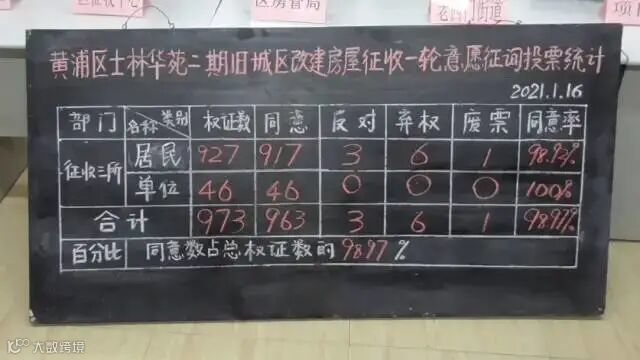 区房管局
老西门街道
黄浦区士林华苑二期旧城区改建房屋征收一轮意愿征询投票统计
2021.1.16
部门 名称 类别 权证数 同意 反对 弃权 废票 同意率
征收三所 居民 927 917 3 6 1 98.92%
单位 46 46 0 0 0 100%
合计 973 963 3 6 1 98.97%
百分比 同意数占总权证数的98.97%
大数跨境